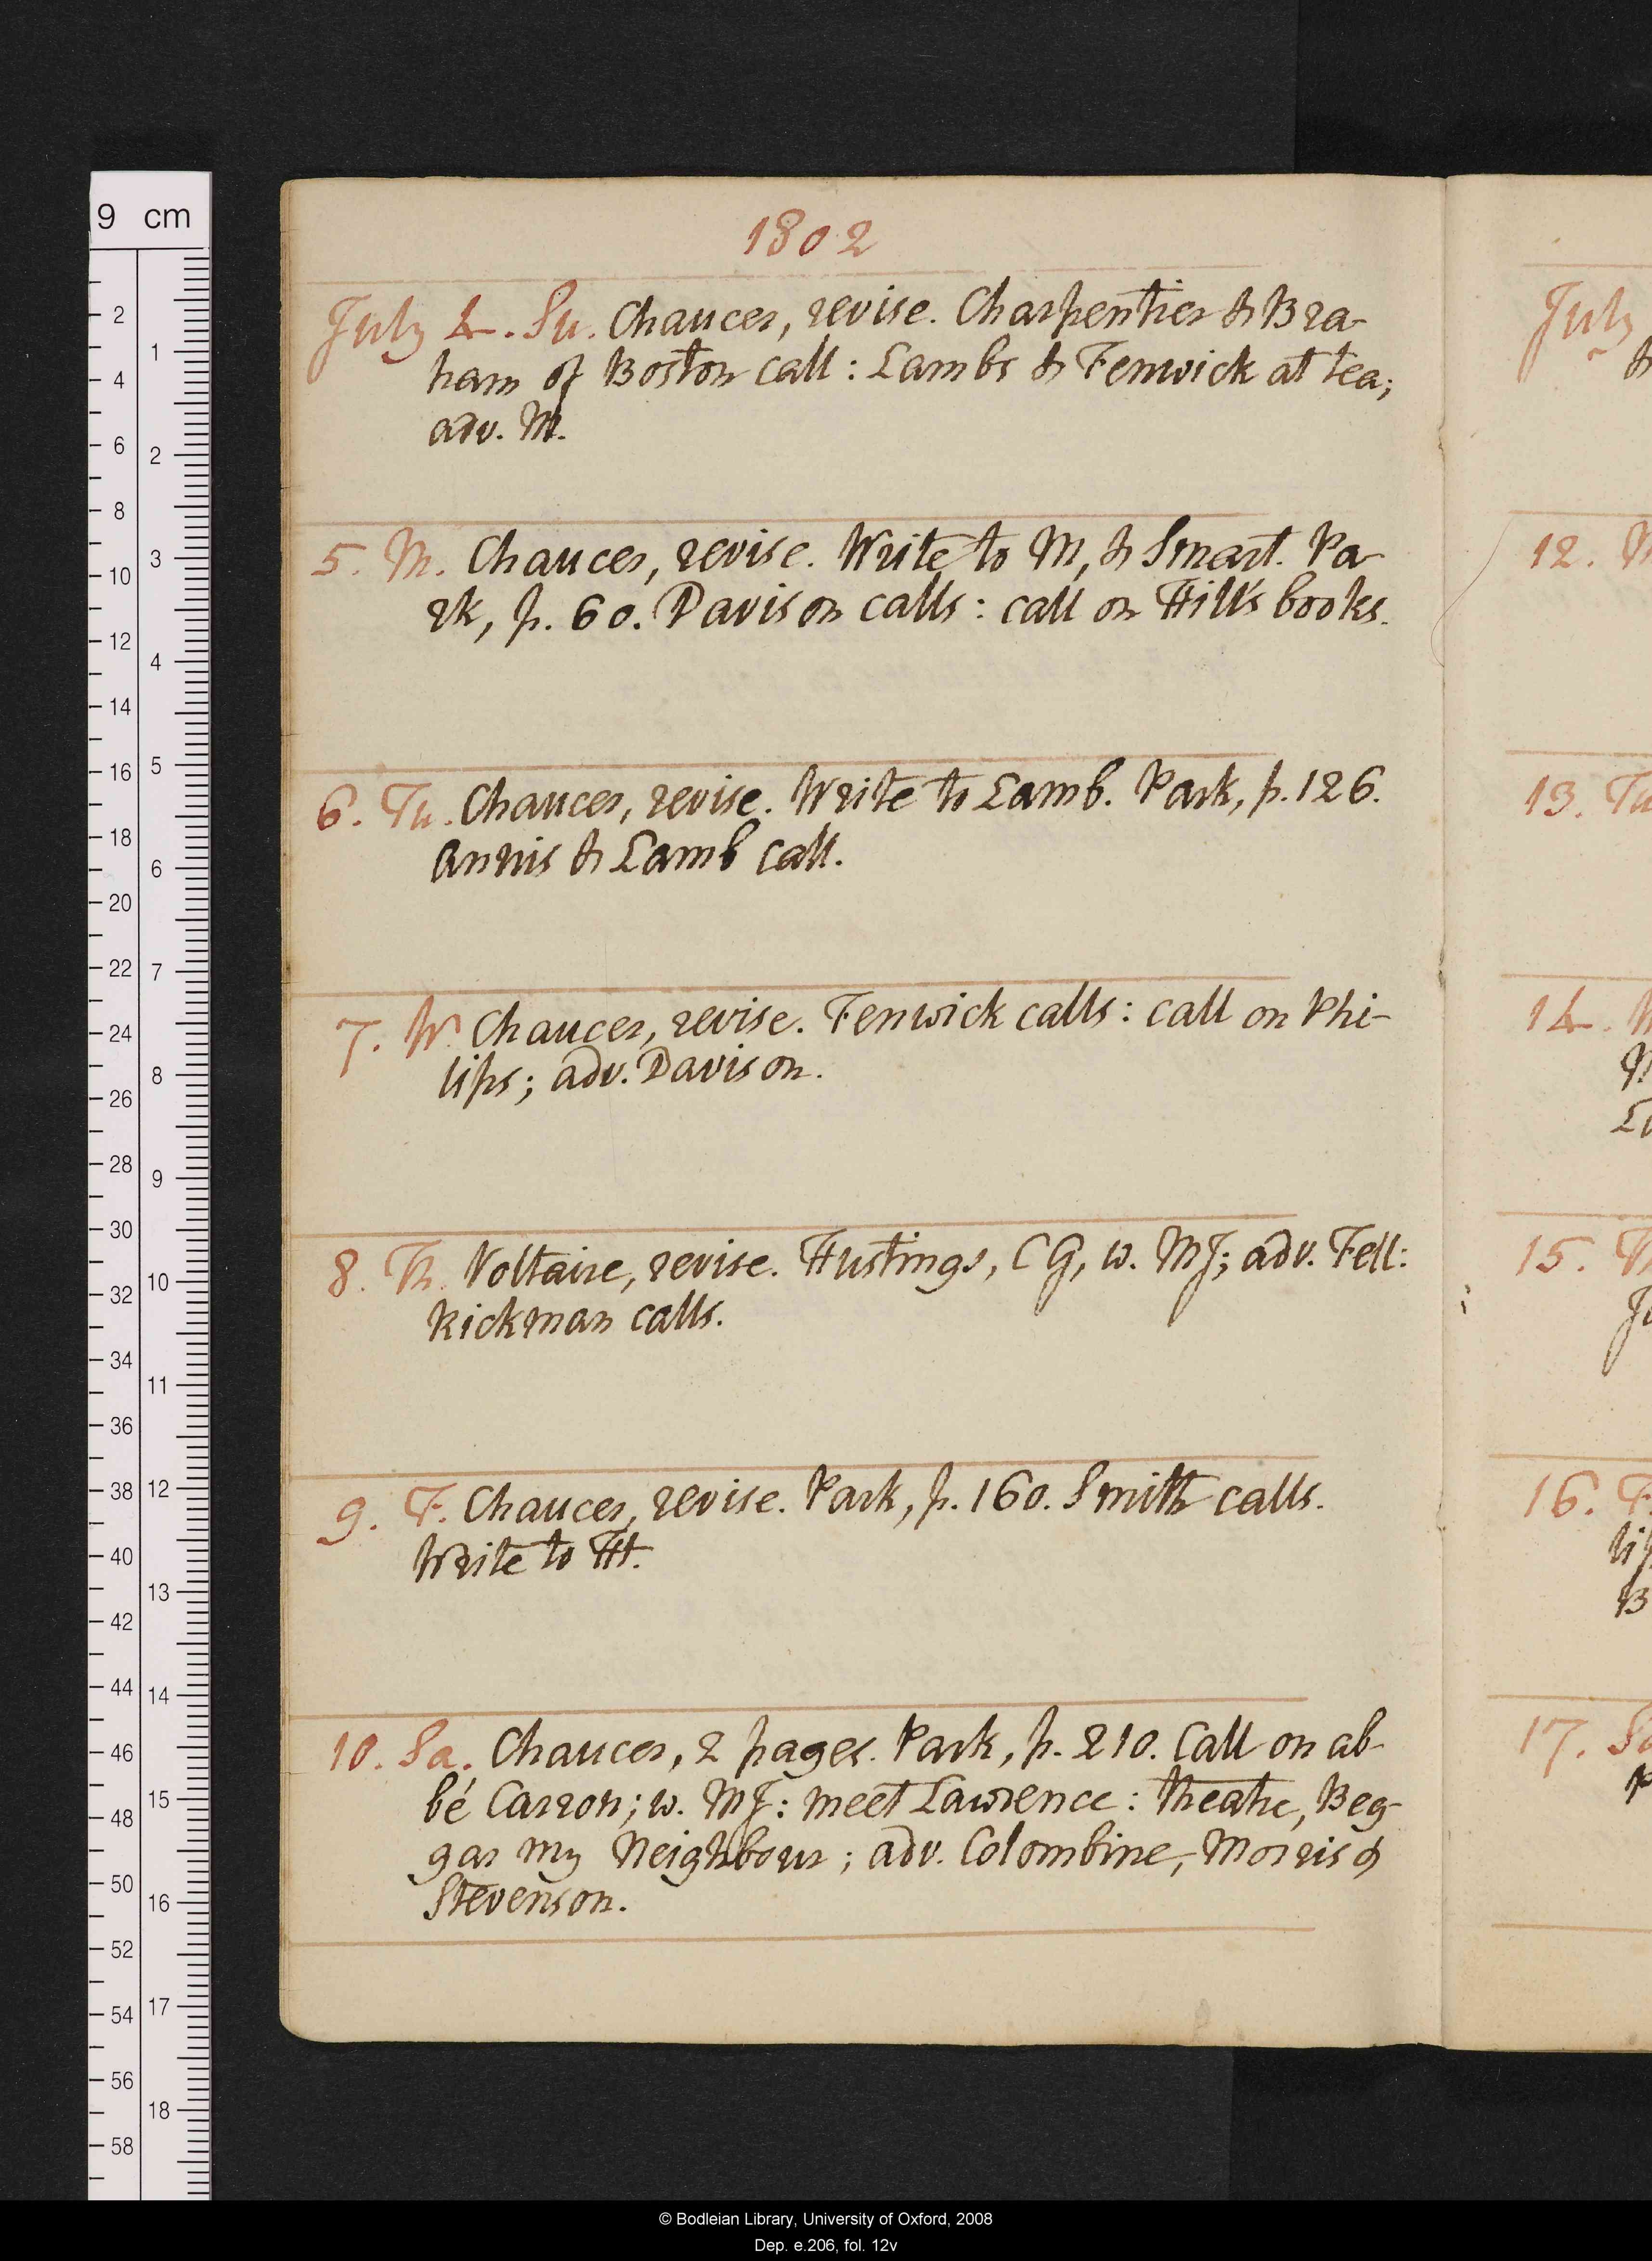 1802
July 4. Su. Chaucer, revise. Charpentier & Bra-
ham of Boston call: Lambs & Fenwick at tea;
adv. M.
5. M. Chaucer, revise. Write to M, & Smart. Pa-
rk, p. 60. Davison calls: call on Hill's books.
6. Tu. Chaucer, revise. Write to Lamb. Park, p. 126.
Annis & Lamb call.
7. W. Chaucer, revise. Fenwick calls: call on Phi-
lips; adv. Davison.
8. Th. Voltaire, revise. Hustings, CG, w. MJ; adv. Fell:
Rickman calls.
9. F. Chaucer, revise. Park, p. 160. Smith calls.
Write to Ht.
10. Sa. Chaucer, 2 pages. Park, p. 210. Call on ab-
bé Carron; w. MJ: meet Lawrence: theatre, Beg-
gar my Neighbour; adv. Colombine, Morris &
Stevenson.
July
12.
13. Tu
14.
15. Th
16. F.
17. Sa
9 cm
2
4
6
8
10
12
14
16
18
20
22
24
26
28
30
32
34
36
38
40
42
44
46
48
50
52
54
56
58
1
2
3
4
5
6
7
8
9
10
11
12
13
14
15
16
17
18
© Bodleian Library, University of Oxford, 2008
Dep. e.206, fol. 12v